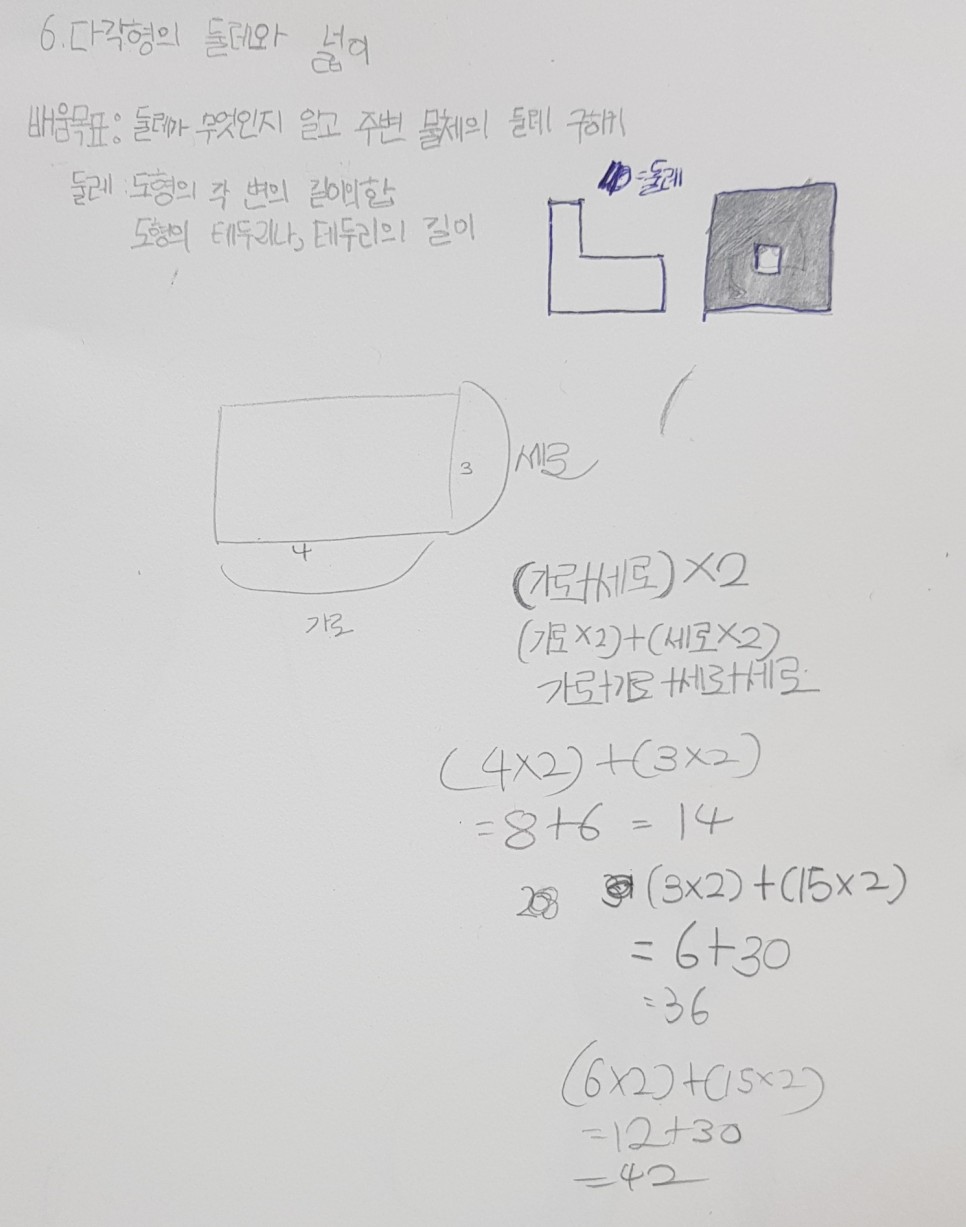 6. 다각형의 둘레와 넓이
배움목표: 둘레가 무엇인지 알고 주변 물체의 둘레 구하기
둘레: 도형의 각 변의 길이의 합
도형의 테두리나, 테두리의 길이
=둘레
3
세로
4
가로
(가로+세로)×2
(가로×2)+(세로×2)
가로+가로+세로+세로
(4×2)+(3×2)
=8+6 = 14
(3×2)+(15×2)
= 6+30
=36
(6×2)+(15×2)
=12+30
=42